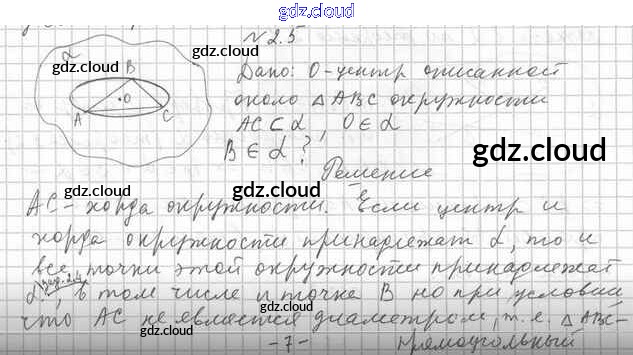 gdz.cloud
№2.5
α
gdz.cloud
gdz.cloud
B
O
A
C
Дано: O-центр описанной
около △ABC окружности
AC ⊂ α, O ∈ α
B ∈ α ?
gdz.cloud
gdz.cloud
Решение
gdz.cloud
AC - хорда окружности. Если центр и
хорда окружности принадлежат α, то и
все точки этой окружности принадлежат
gdz.cloud
α, в том числе и точка B но при условии
что AC не является диаметром, т.е. △ABC-
gdz.cloud
gdz.cloud
-7-
прямоугольный